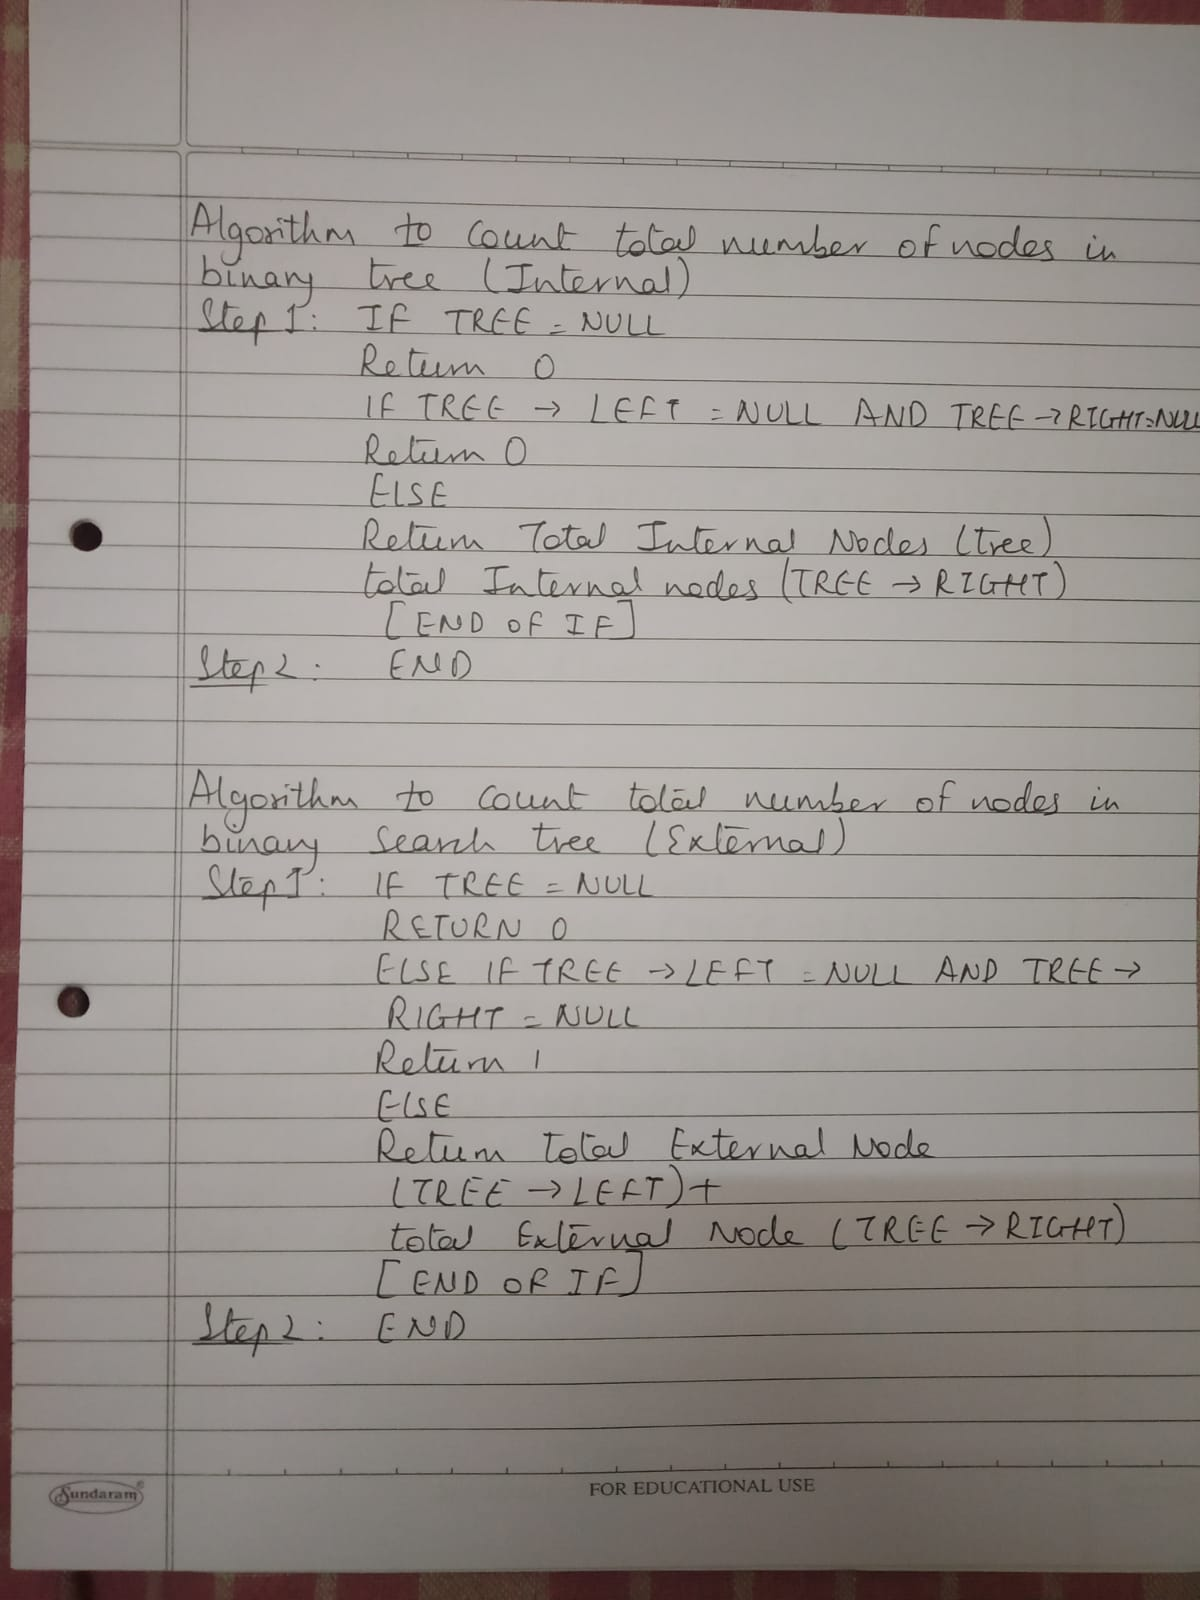 Algorithm to count total number of nodes in
binary tree (Internal)
Step 1: IF TREE = NULL
Return 0
IF TREE → LEFT = NULL AND TREE → RIGHT = NULL
Return 0
ELSE
Return Total Internal Nodes (tree)
total Internal nodes (TREE → RIGHT)
[END OF IF]
Step 2: END
Algorithm to count total number of nodes in
binary search tree (External)
Step 1: IF TREE = NULL
RETURN 0
ELSE IF TREE → LEFT = NULL AND TREE →
RIGHT = NULL
Return 1
ELSE
Return total External Node
(TREE → LEFT) +
total External Node (TREE → RIGHT)
[END OF IF]
Step 2: END
Sundaram®
FOR EDUCATIONAL USE